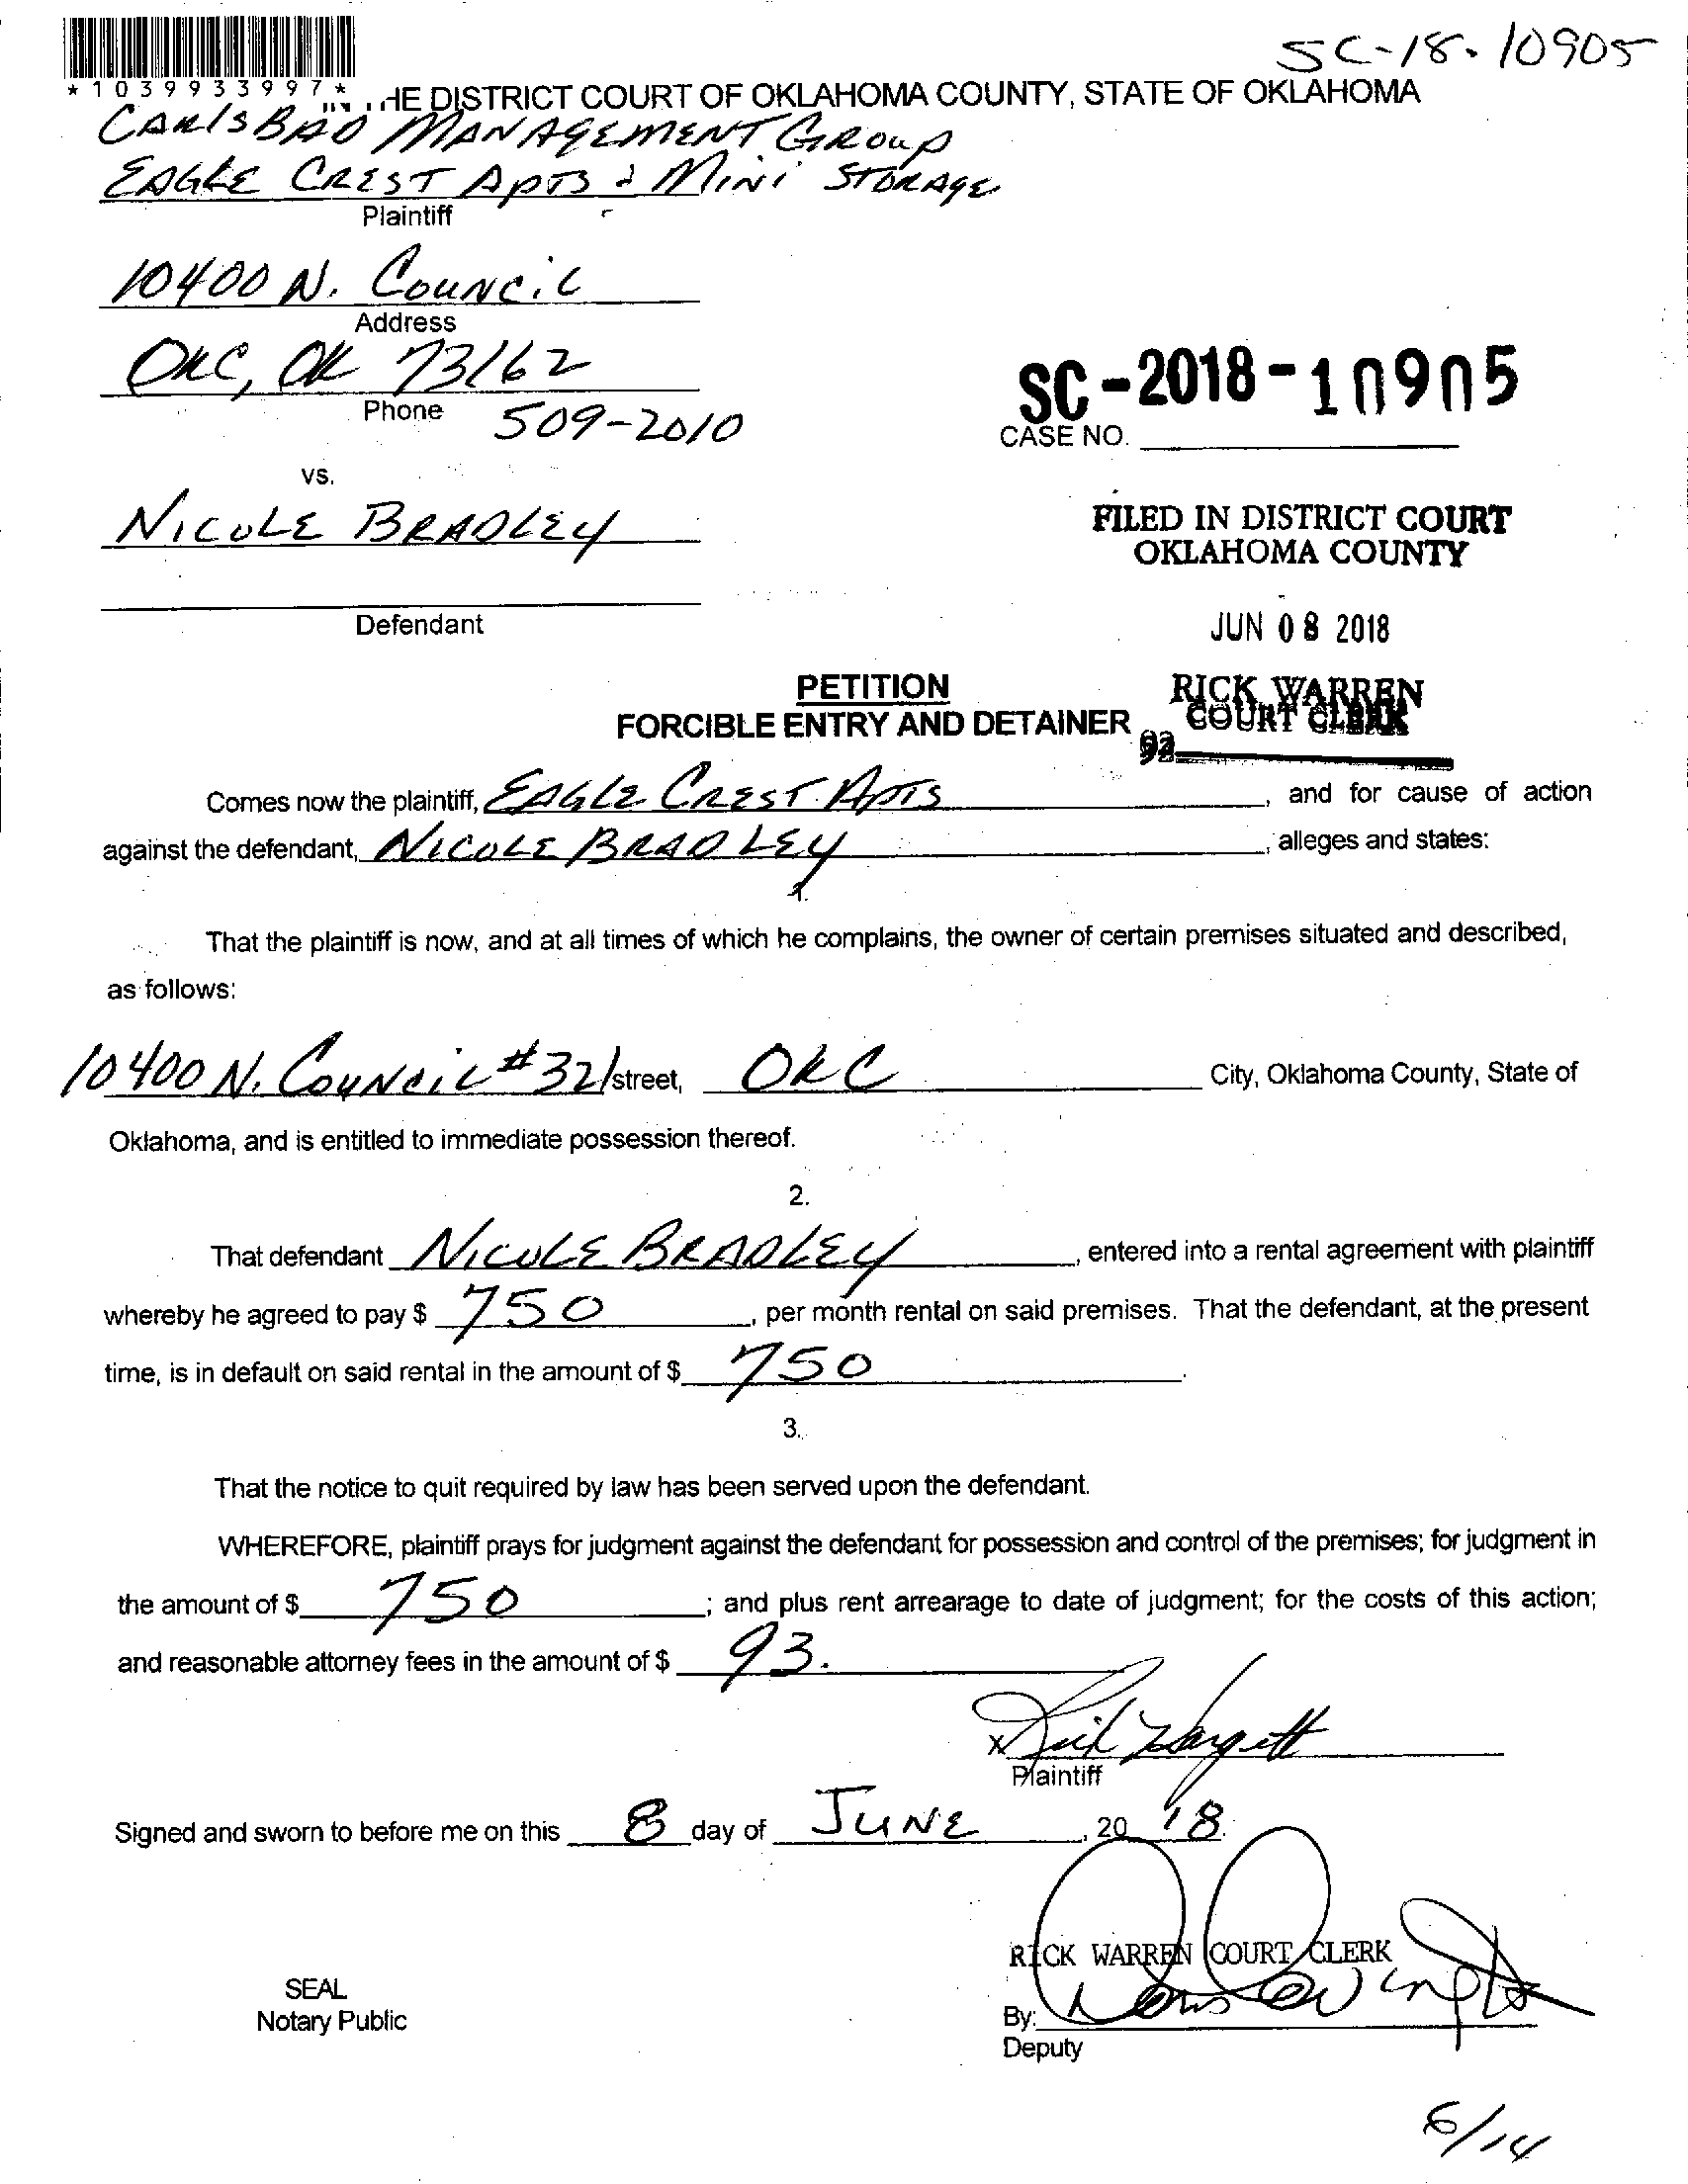 SC-18-10905
*1039933997*
HE DISTRICT COURT OF OKLAHOMA COUNTY, STATE OF OKLAHOMA
CARLSBAD MANAGEMENT GROUP
EAGLE CREST APTS & MINI STORAGE
Plaintiff
10400 N. COUNCIL
Address
OKC, OK 73162
Phone 509-2010
SC-2018-10905
CASE NO.
vs.
NICOLE BRADLEY
FILED IN DISTRICT COURT
OKLAHOMA COUNTY
Defendant
JUN 08 2018
PETITION
FORCIBLE ENTRY AND DETAINER
RICK WARREN
COURT CLERK
Comes now the plaintiff, EAGLE CREST APTS, and for cause of action
against the defendant, NICOLE BRADLEY, alleges and states:
1.
That the plaintiff is now, and at all times of which he complains, the owner of certain premises situated and described,
as follows:
10400 N. COUNCIL #321 street, OKC City, Oklahoma County, State of
Oklahoma, and is entitled to immediate possession thereof.
2.
That defendant NICOLE BRADLEY, entered into a rental agreement with plaintiff
whereby he agreed to pay $ 750, per month rental on said premises. That the defendant, at the present
time, is in default on said rental in the amount of $ 750.
3.
That the notice to quit required by law has been served upon the defendant.
WHEREFORE, plaintiff prays for judgment against the defendant for possession and control of the premises; for judgment in
the amount of $ 750; and plus rent arrearage to date of judgment; for the costs of this action;
and reasonable attorney fees in the amount of $ 93.
x
Plaintiff
Signed and sworn to before me on this 8 day of JUNE, 2018.
RICK WARREN COURT CLERK
SEAL
Notary Public
By:
Deputy
6/14